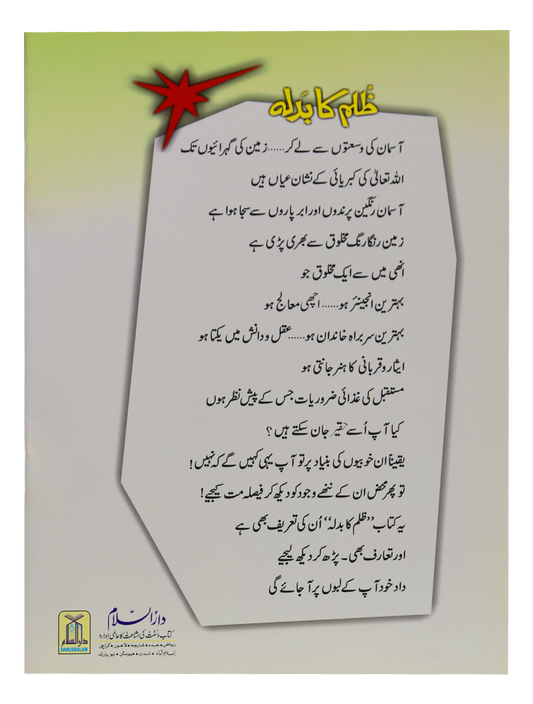 ظُلم کا بَدلہ
آسمان کی وسعتوں سے لے کر......زمین کی گہرائیوں تک
اللہ تعالیٰ کی کبریائی کے نشان عیاں ہیں
آسمان رنگین پرندوں اور ابر پاروں سے سجا ہوا ہے
زمین رنگارنگ مخلوق سے بھری پڑی ہے
انھی میں سے ایک مخلوق جو
بہترین انجینئر ہو......اچھی معالج ہو
بہترین سربراہِ خاندان ہو......عقل و دانش میں یکتا ہو
ایثار و قربانی کا ہنر جانتی ہو
مستقبل کی غذائی ضروریات جس کے پیش نظر ہوں
کیا آپ اُسے حقیر جان سکتے ہیں؟
یقیناً ان خوبیوں کی بنیاد پر تو آپ یہی کہیں گے کہ نہیں!
تو پھر محض ان کے ننھے وجود کو دیکھ کر فیصلہ مت کیجیے!
یہ کتاب ”ظلم کا بدلہ“ اُن کی تعریف بھی ہے
اور تعارف بھی۔ پڑھ کر دیکھ لیجیے
داد خود آپ کے لبوں پر آ جائے گی
دارُالسّلام
کتاب و سُنّت کی اشاعت کا عالمی ادارہ
ریاض • جدہ • شارجہ • لاہور • کراچی
اسلام آباد • لندن • ہیوسٹن • نیو یارک
دارالسلام
DARUSSALAM